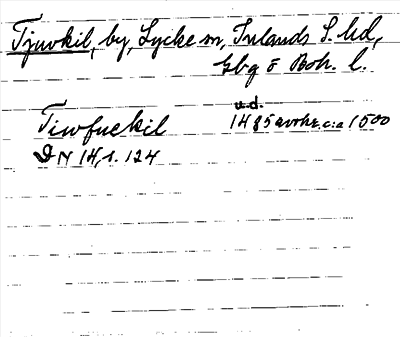 Tjuvkil, by, Lycke sn, Inlands S. hd,
Gbg o Boh. l.
u.d.
Tiwfuekil 1485 avskr. c:a 1500
DN 14,1. 124